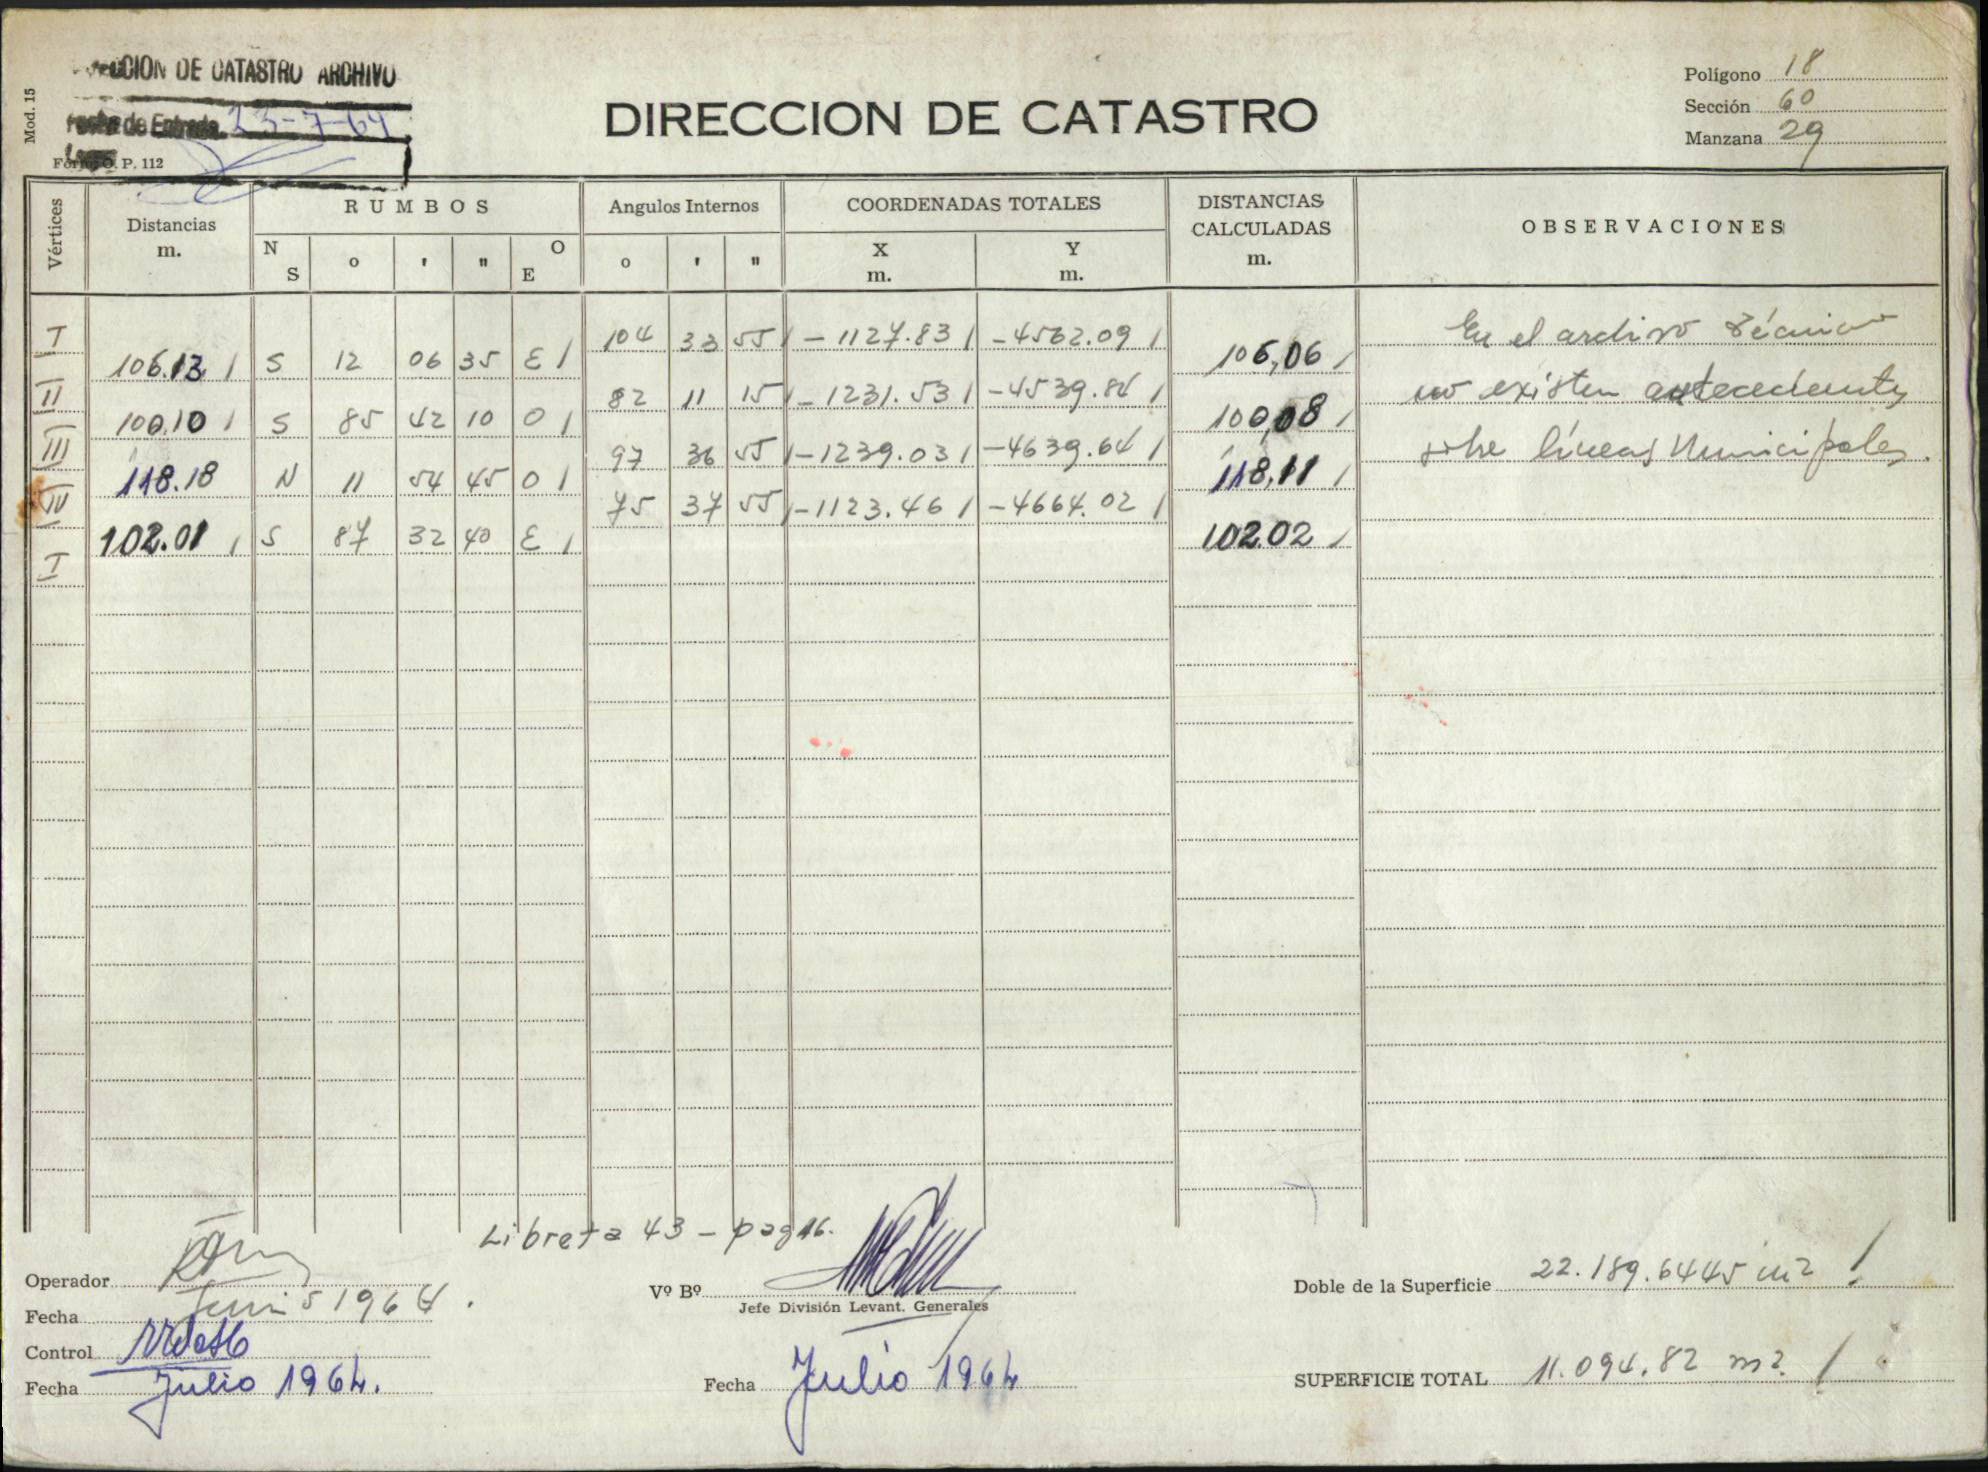 DIRECCION DE CATASTRO ARCHIVO
Fecha de Entrada 23-7-64
Mod. 15
Form. O. P. 112
DIRECCION DE CATASTRO
Polígono 18
Sección 60
Manzana 29
Vértices Distancias m. RUMBOS Angulos Internos COORDENADAS TOTALES DISTANCIAS CALCULADAS m. OBSERVACIONES
N S o ' " O E o ' " X m. Y m.
I 104 33 55 -1127.83 -4562.09 En el archivo técnico
106.13 S 12 06 35 E 106,06
II 82 11 15 -1231.53 -4539.84 no existen antecedentes
100.10 S 85 42 10 O 100,08
III 97 36 55 -1239.03 -4639.64 sobre líneas Municipales.
118.18 N 11 54 45 O 118,11
IV 75 37 55 -1123.46 -4664.02
102.01 S 87 32 40 E 102.02
I
Libreta 43 - pag 16.
Operador
Fecha Junio 1964.
Control
Fecha Julio 1964.
Vº Bº
Jefe División Levant. Generales
Fecha Julio 1964
Doble de la Superficie 22.189.6445 m2
SUPERFICIE TOTAL 11.094.82 m2.